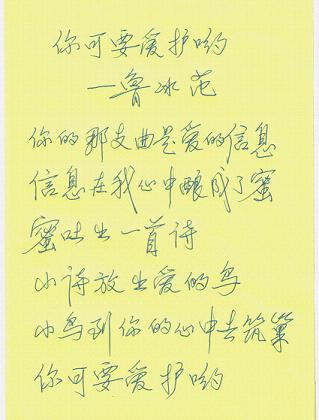 你可要爱护哟
—鲁冰范
你的那支曲是爱的信息
信息在我心中酿成了蜜
蜜吐出一首诗
小诗放出爱的鸟
小鸟到你的心中去筑巢
你可要爱护哟